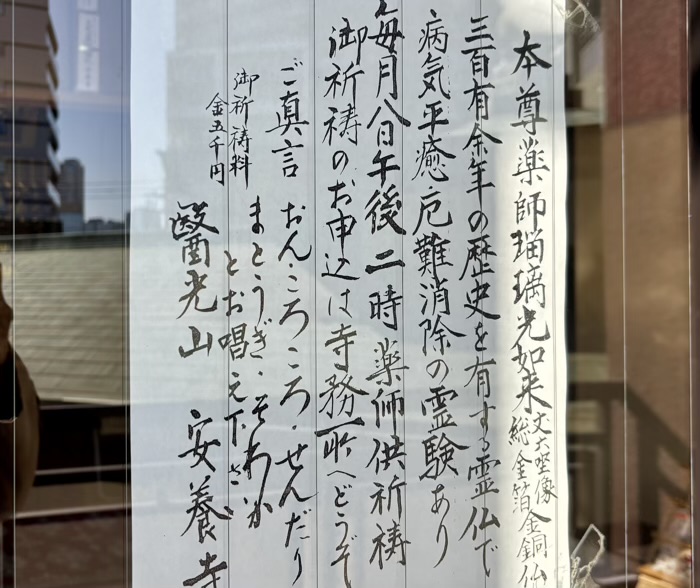 本尊薬師瑠璃光如来 丈六坐像
総金箔金銅仏
三百有余年の歴史を有する霊仏で
病気平癒厄難消除の霊験あり
毎月八日午後二時薬師供祈祷
御祈祷のお申込は寺務所へどうぞ
ご真言 おん.ころころ.せんだり
まとうぎ.そわか
とお唱え下さい
御祈祷料
金五千円
醫光山 安養寺